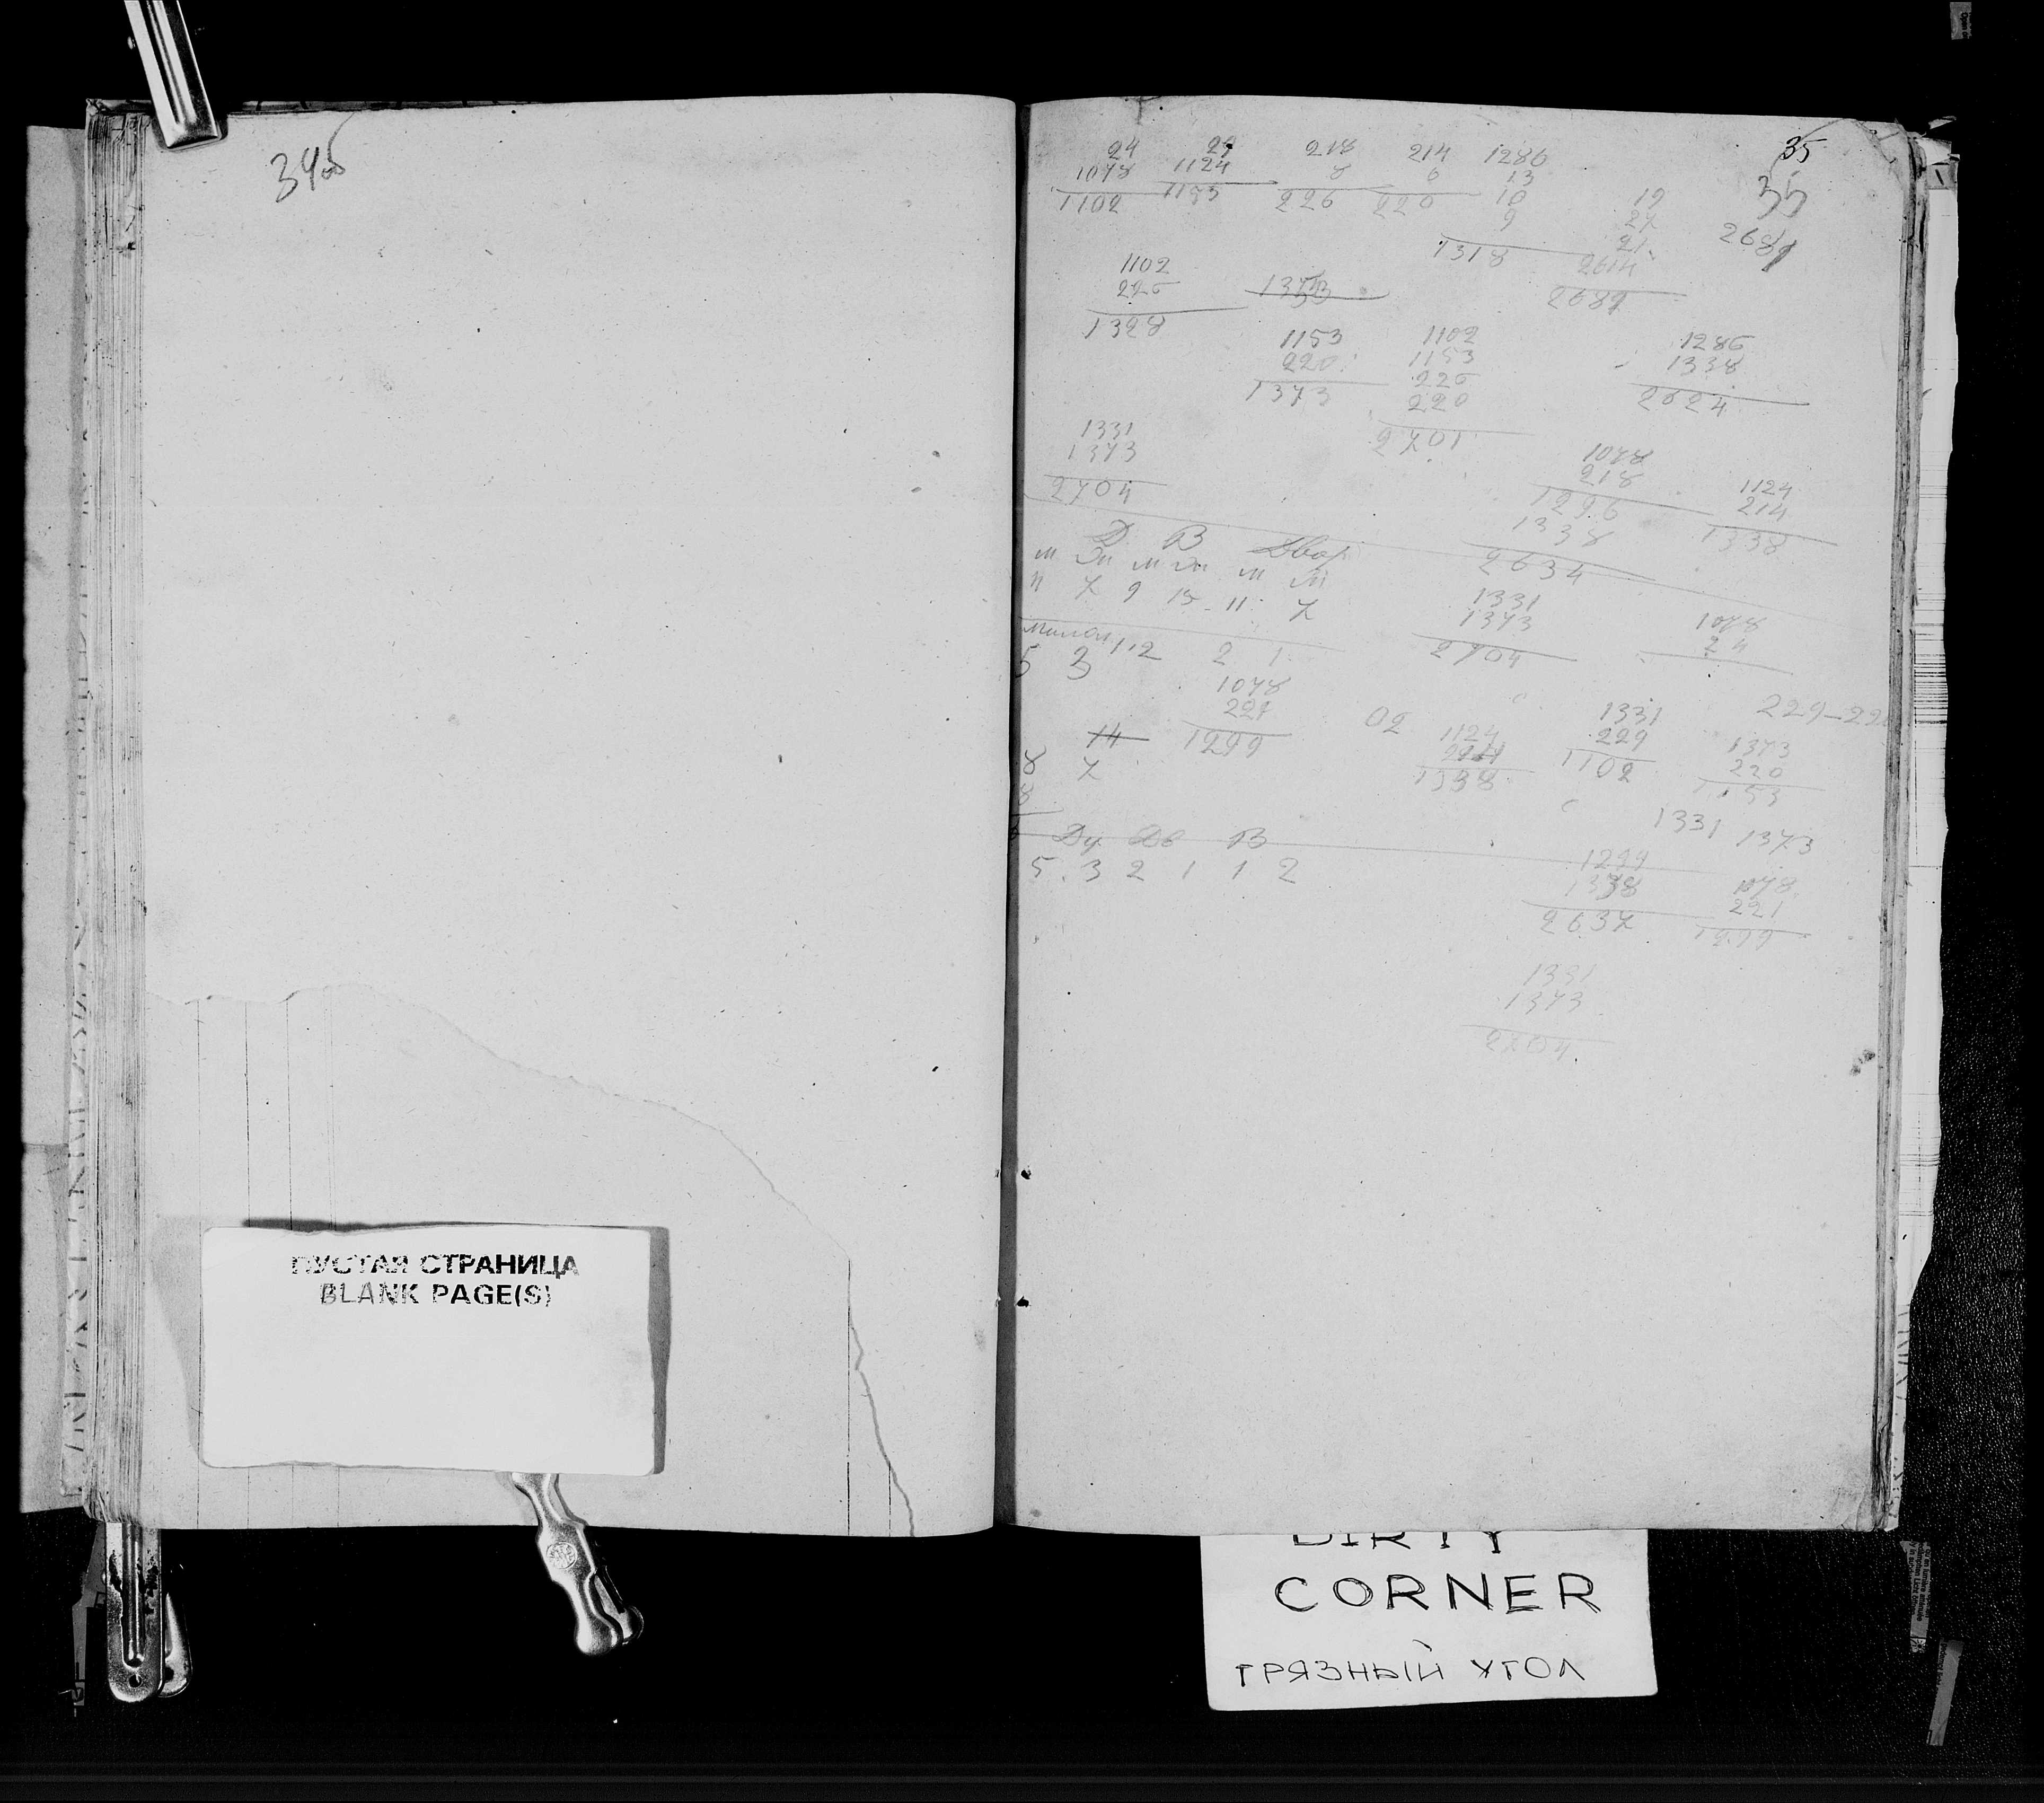 34об
ПУСТАЯ СТРАНИЦА
BLANK PAGE(S)
35
35
2681
24
1078
1102
29
1124
1153
218
8
226
214
6
220
1286
13
10
9
1318
19
27
21
2614
2681
1102
226
1328
1153
220
1373
1102
1153
226
220
2701
1286
1338
2624
1331
1373
2704
1078
218
1296
1338
2634
1124
214
1338
Д В Двор
м ж м ж м ж
11 7 9 15 11 7
5 3 1 2 2 1
1331
1373
2704
1078
24
1078
221
1299
14
7
8
8
02
1124
214
1338
1331
229
1102
229-22
1373
220
1153
1331 1373
Ду Дв В
5. 3 2 1 1 2
1299
1338
2637
1078
221
1299
1331
1373
2704
DIRTY
CORNER
ГРЯЗНЫЙ УГОЛ